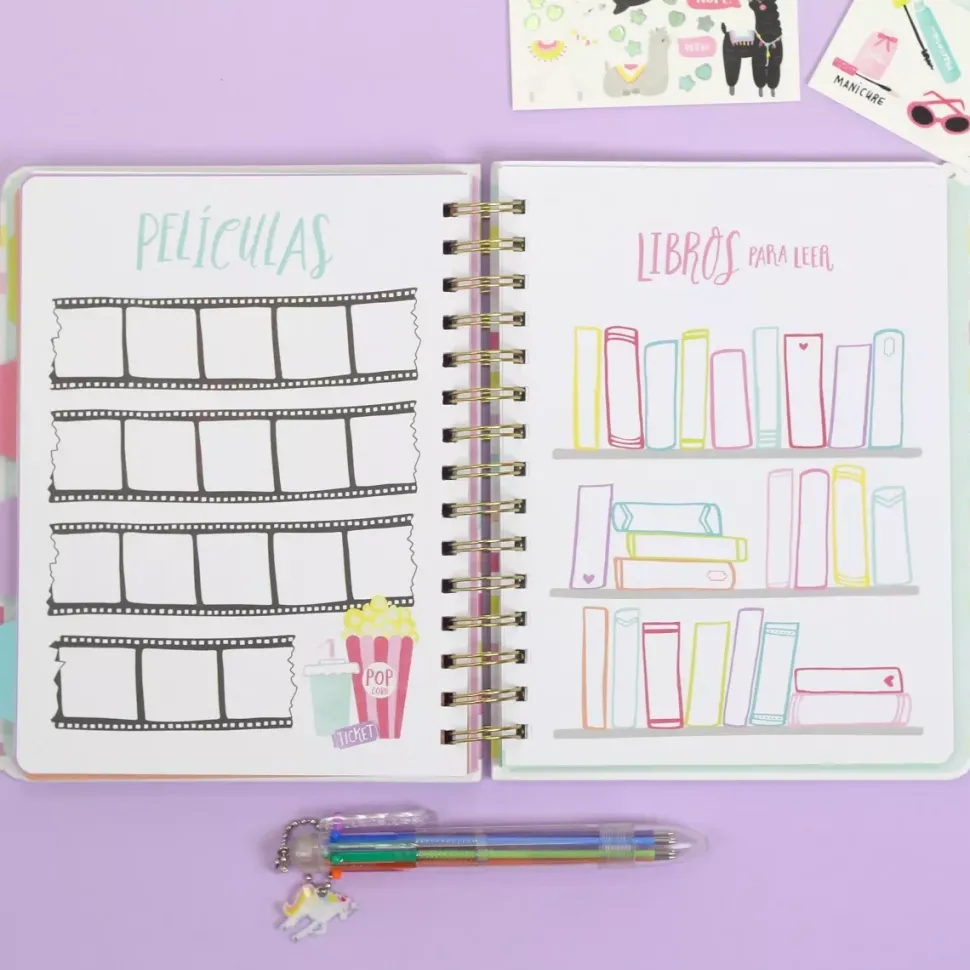 MANICURE
PELÍCULAS
LIBROS PARA LEER
POP
CORN
TICKET